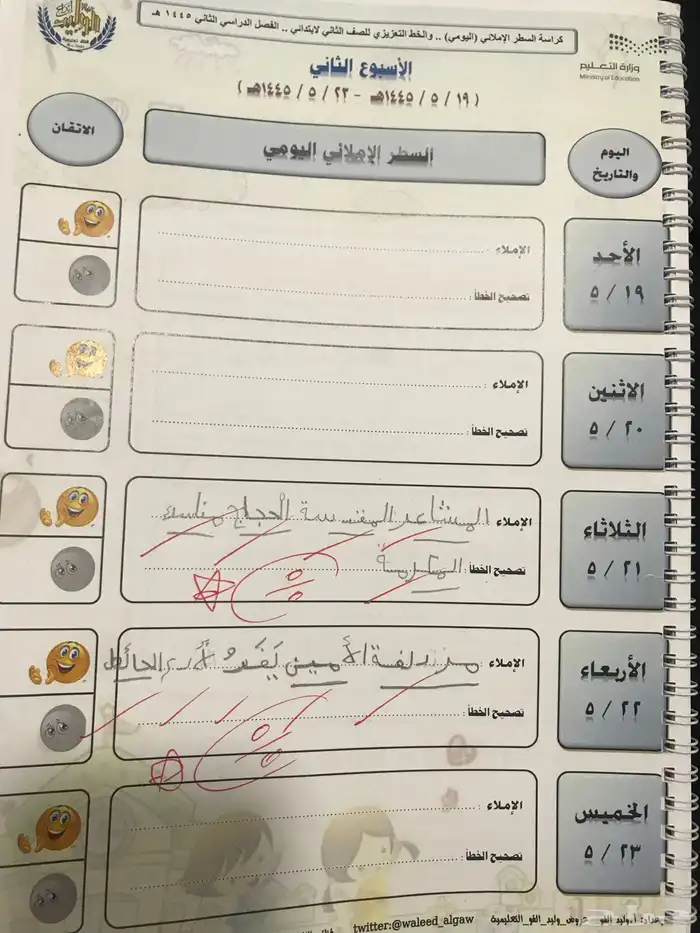 كراسة السطر الإملائي (اليومي) .. والخط التعزيزي للصف الثاني لابتدائي .. الفصل الدراسي الثاني ١٤٤٥ هـ
وزارة التعليم
Ministry of Education
الأسبوع الثاني
( ١٩ / ٥ / ١٤٤٥هـ - ٢٣ / ٥ / ١٤٤٥هـ )
اليوم والتاريخ
السطر الإملائي اليومي
الاتقان
الأحد
١٩ / ٥
الإملاء :
تصحيح الخطأ :
الاثنين
٢٠ / ٥
الإملاء :
تصحيح الخطأ :
الثلاثاء
٢١ / ٥
الإملاء : المشاعر المقدسة الحجاج مناسك
تصحيح الخطأ : المكرمة
الأربعاء
٢٢ / ٥
الإملاء : مزدلفة الأمين الحائط
تصحيح الخطأ :
الخميس
٢٣ / ٥
الإملاء :
تصحيح الخطأ :
عروض_وليد_الغو_التعليمية
twitter:@waleed_algaw